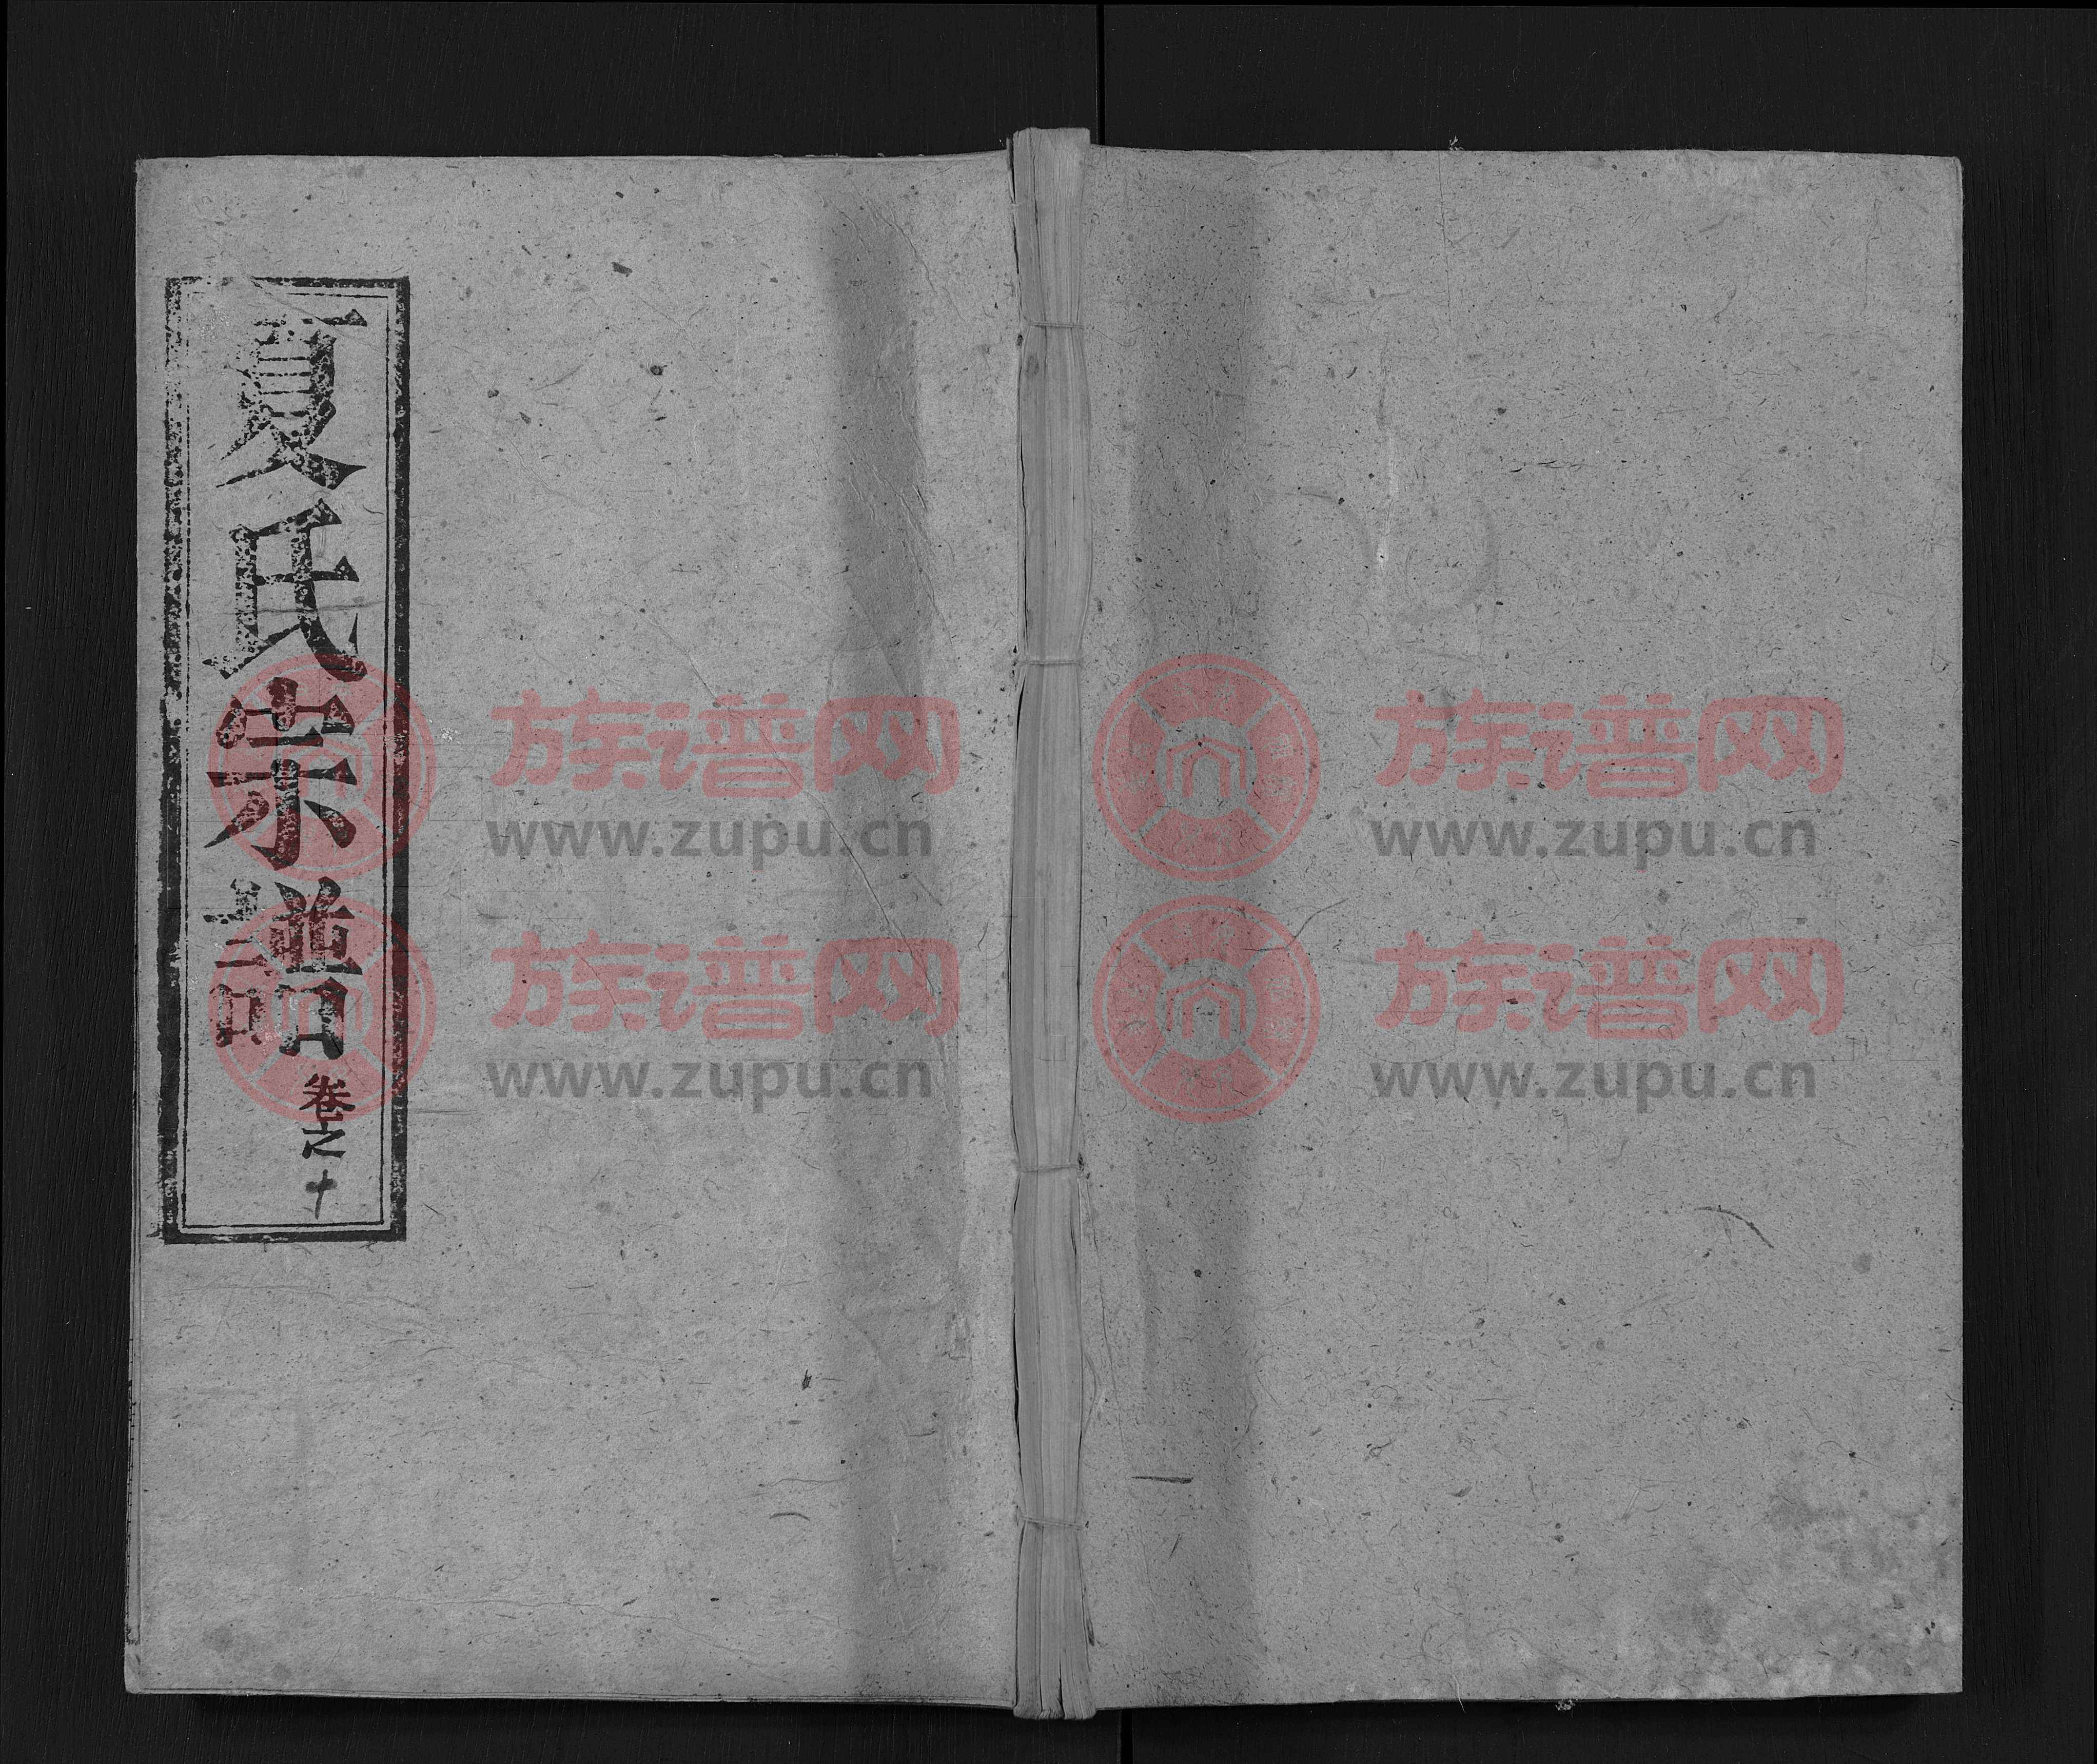 夏氏宗譜
卷之十
族谱网
www.zupu.cn
族谱网
www.zupu.cn
族谱网
www.zupu.cn
族谱网
www.zupu.cn